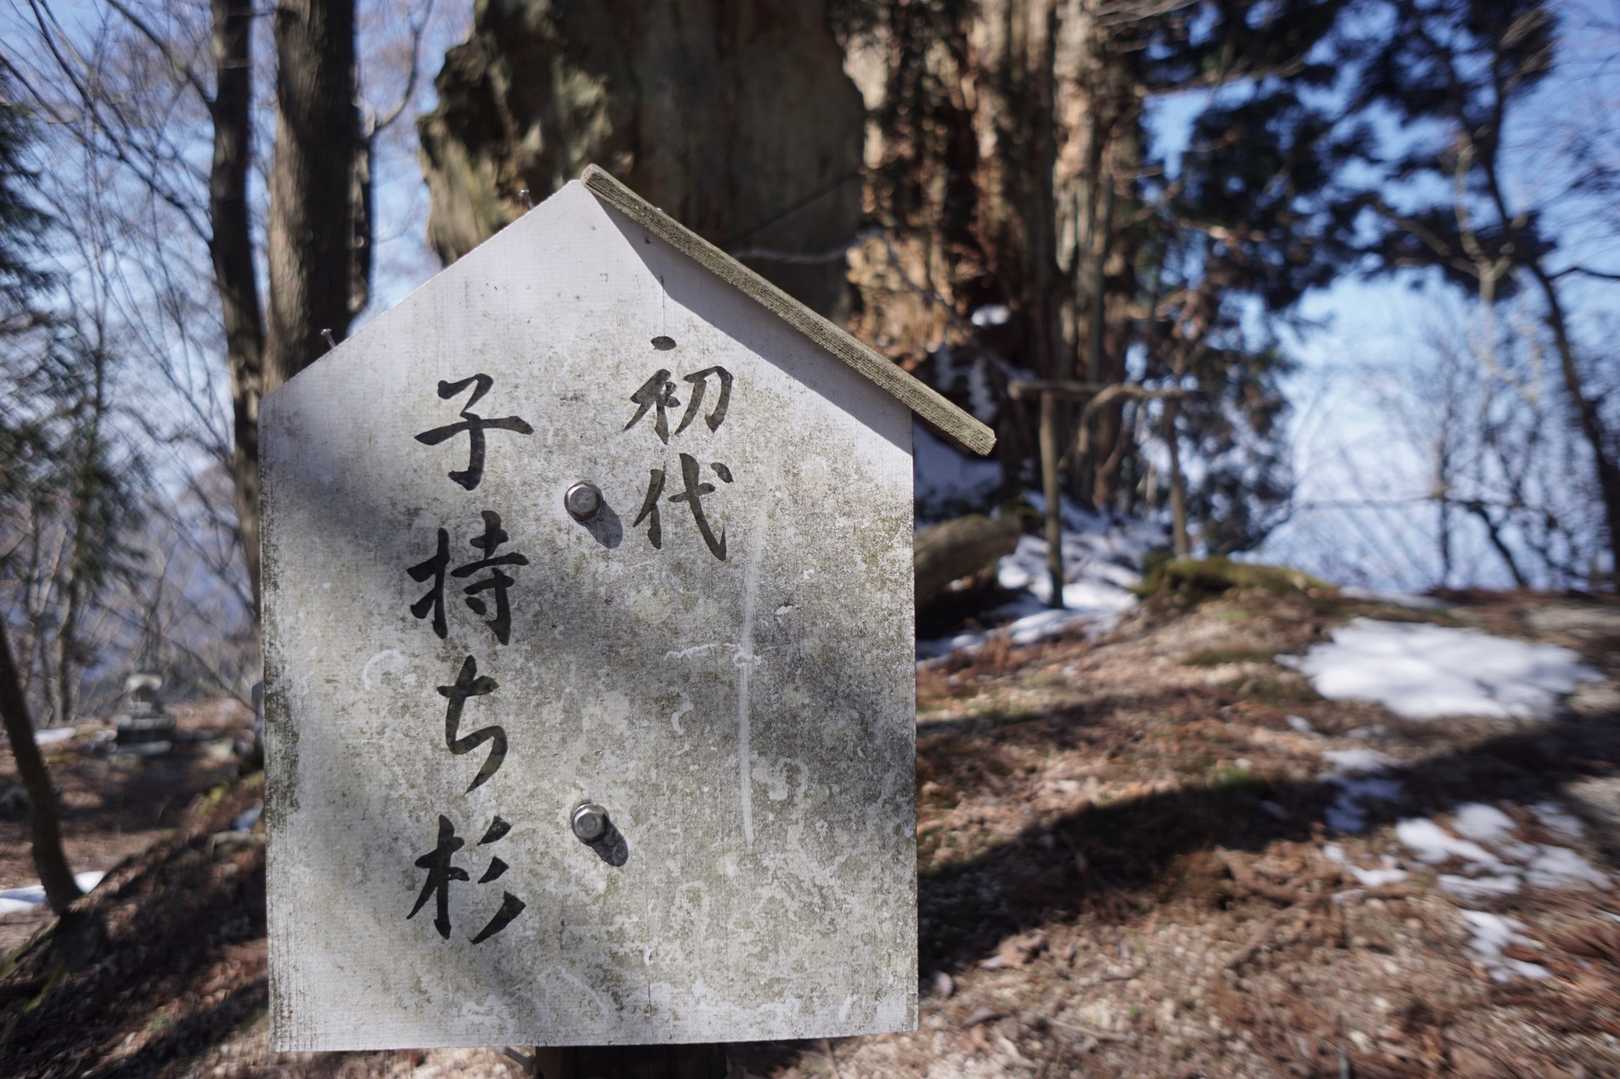 初代
子持ち杉